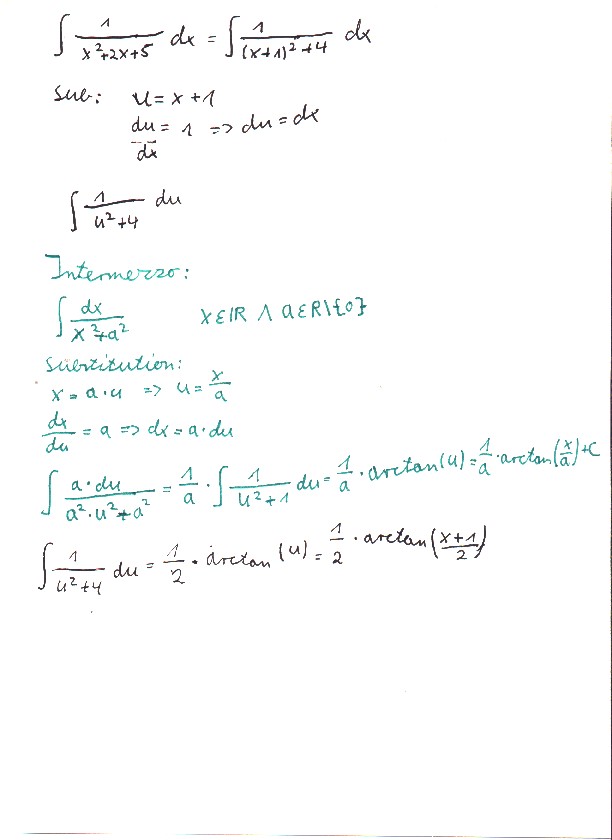 ∫ 1/(x²+2x+5) dx = ∫ 1/((x+1)²+4) dx
Sub: u = x+1
du/dx = 1 => du = dx
∫ 1/(u²+4) du
Intermezzo:
∫ dx/(x²+a²) x∈ℝ ∧ a∈ℝ\{0}
Substitution:
x = a·u => u = x/a
dx/du = a => dx = a·du
∫ a·du/(a²·u²+a²) = 1/a · ∫ 1/(u²+1) du = 1/a · arctan(u) = 1/a · arctan(x/a) + C
∫ 1/(u²+4) du = 1/2 · arctan(u) = 1/2 · arctan((x+1)/2)